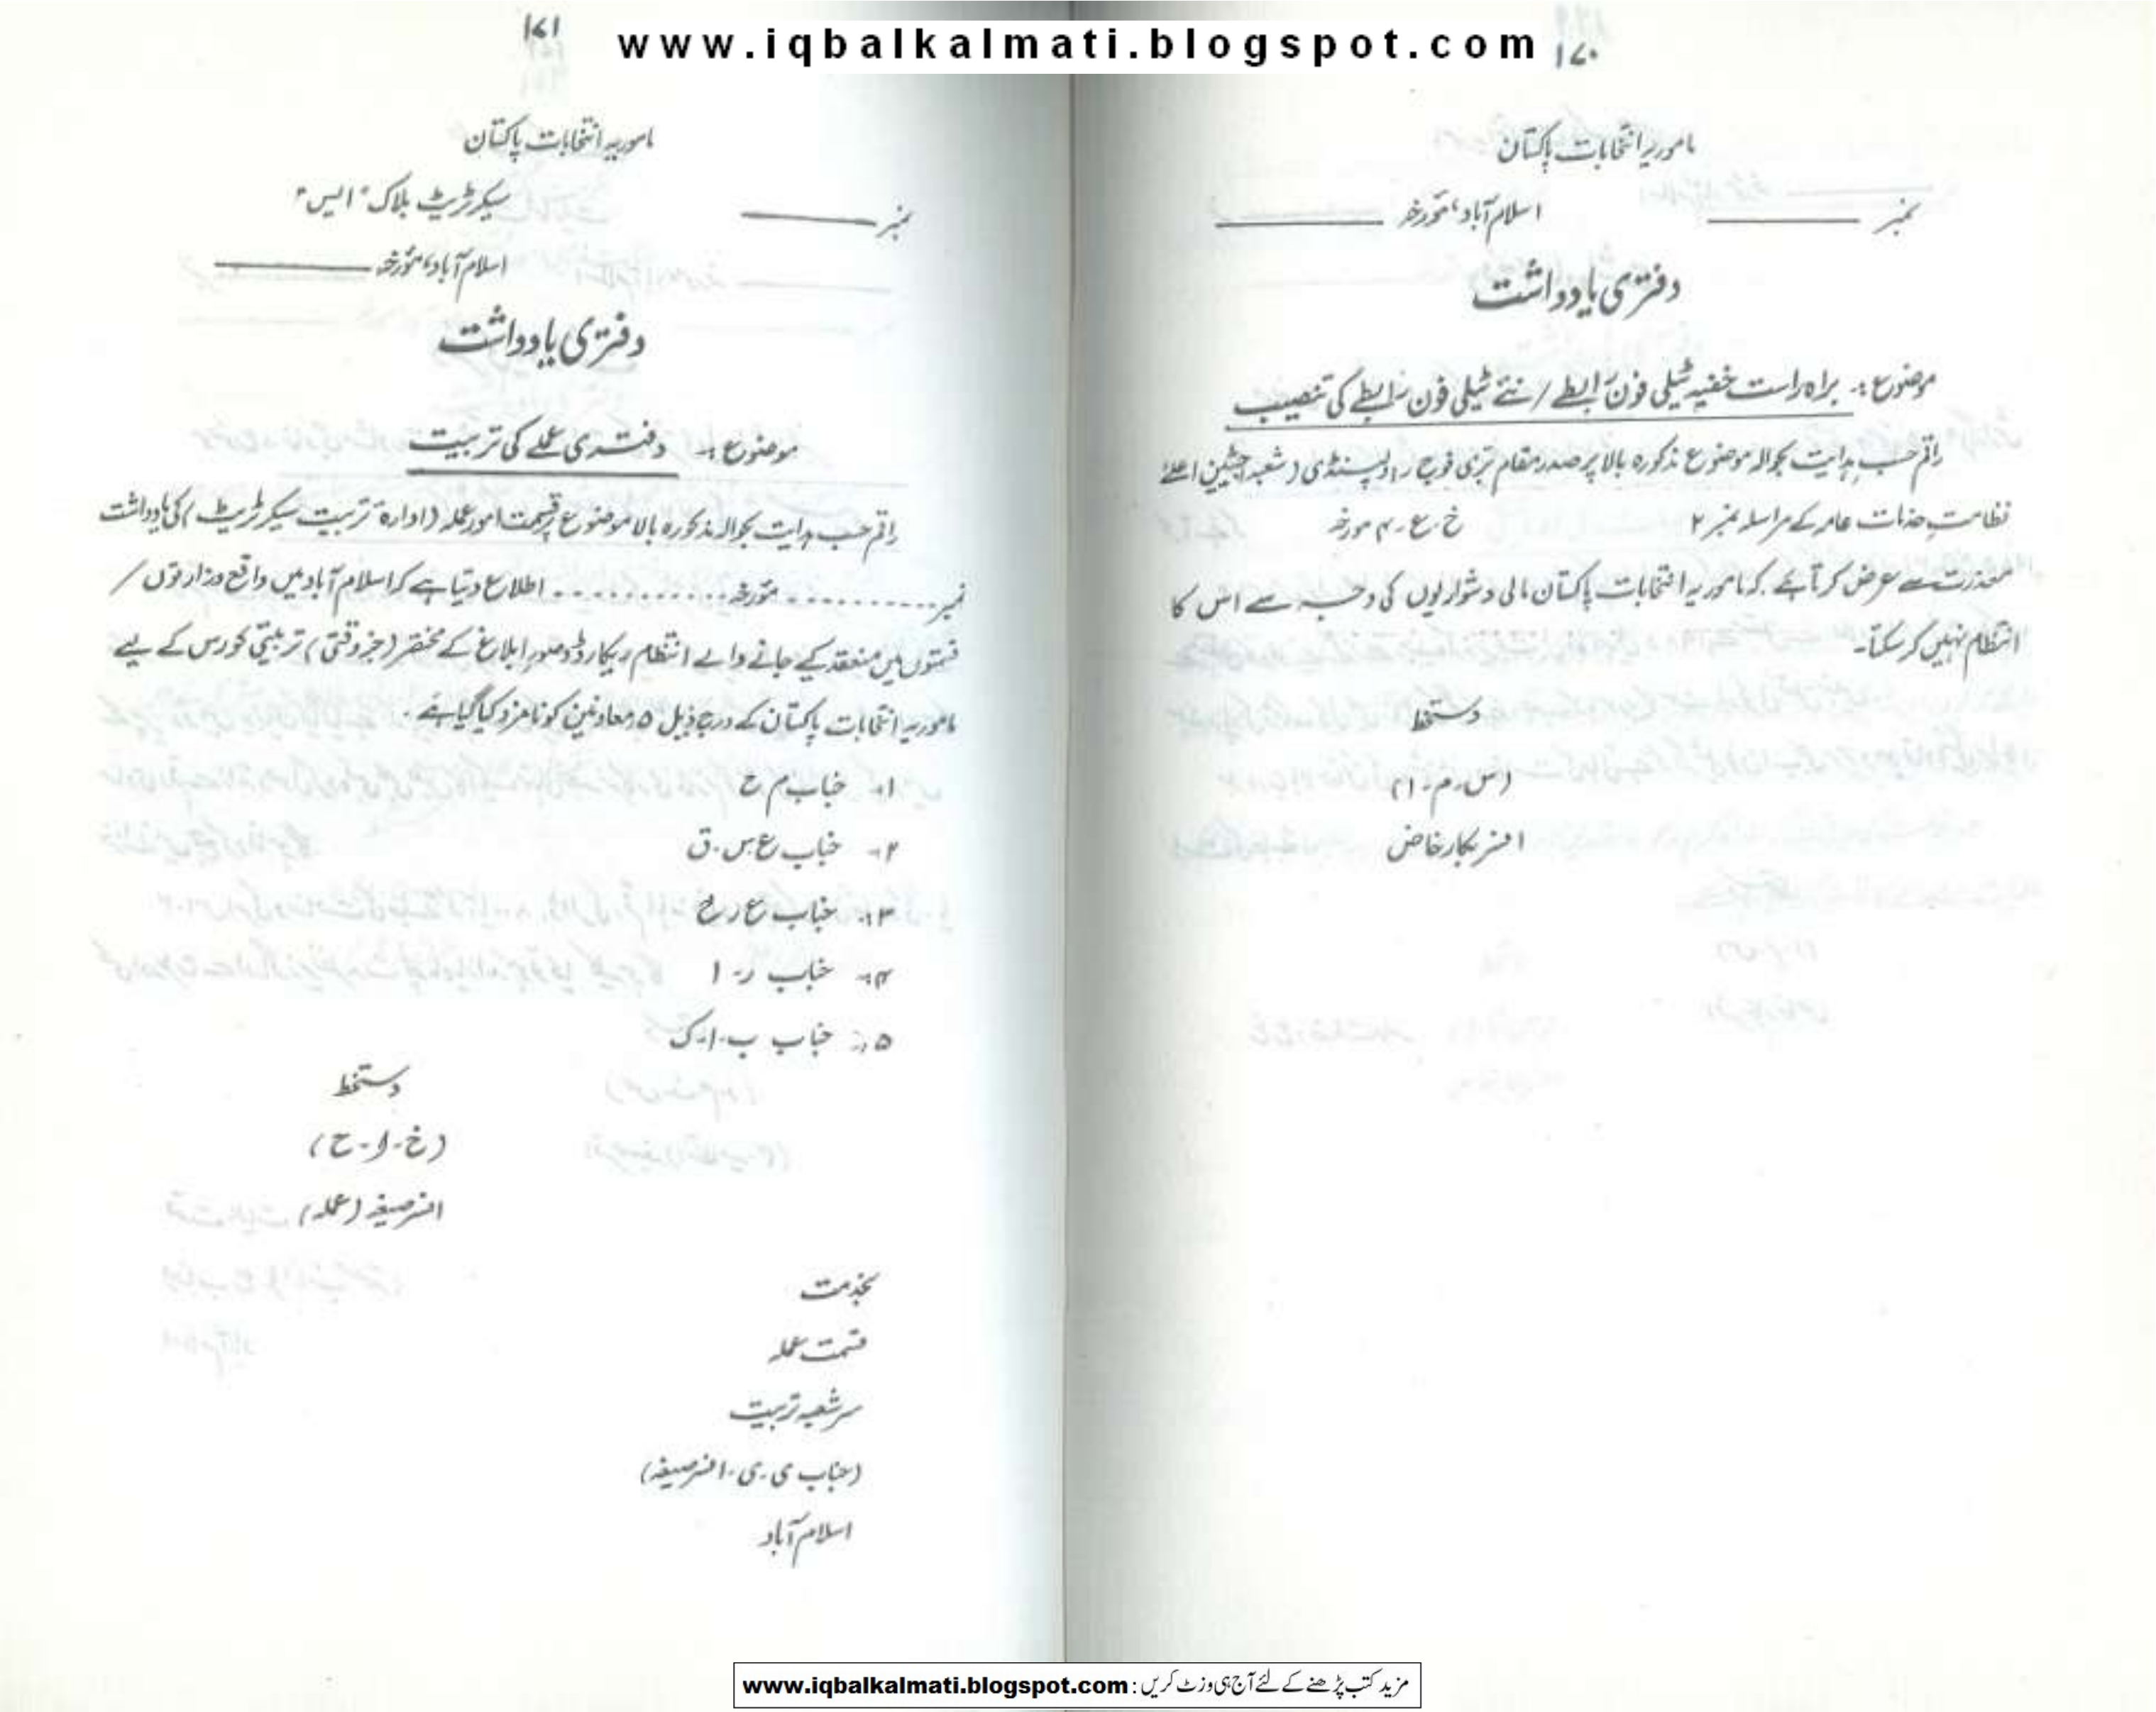 www.iqbalkalmati.blogspot.com
۱۷۰
ماموریہ انتخابات پاکستان
نمبر ــــــــ اسلام آباد، مؤرخہ ــــــــ
دفتری یادداشت
موضوع :۔ براہ راست خفیہ ٹیلی فون رابطے / نئے ٹیلی فون رابطے کی تنصیب
راقم حسب ہدایت بحوالہ موضوع مذکورہ بالا پر صدر مقام بری فوج راولپنڈی (شعبہ جیشین اعلےٰ
نظامت خدمات عامہ کے مراسلہ نمبر ۲ خ . ع . م مورخہ
معذرت سے عرض کرتا ہے کہ ماموریہ انتخابات پاکستان مالی دشواریوں کی وجہ سے اس کا
انتظام نہیں کر سکتا۔
دستخط
(س ۔ م ۔ ا)
افسر بکار خاص
۱۷۱
ماموریہ انتخابات پاکستان
نمبر ــــــــ سیکرٹریٹ بلاک "ایس"
اسلام آباد، مؤرخہ ــــــــ
دفتری یادداشت
موضوع :۔ دفتری عملے کی تربیت
راقم حسب ہدایت بحوالہ مذکورہ بالا موضوع پر قسمت امور عملہ (ادارۂ تربیت سیکرٹریٹ) کی یادداشت
نمبر ........... مؤرخہ ........... اطلاع دیتا ہے کہ اسلام آباد میں واقع وزارتوں /
قسمتوں میں منعقد کیے جانے والے انتظام ریکارڈ و صور ابلاغ کے مختصر (جزوقتی) تربیتی کورس کے لیے
ماموریہ انتخابات پاکستان کے درج ذیل ۵ معاونین کو نامزد کیا گیا ہے ۔
۱۔ جناب م ح
۲۔ جناب ع س ۔ ق
۳۔ جناب ع ر ح
۴۔ جناب ر ۔ ا
۵۔ جناب ب ۔ ا ۔ ک
دستخط
(خ ۔ ا ۔ ح)
افسر صیغہ (عملہ)
بخدمت
قسمت عملہ
سر شعبہ تربیت
(جناب ی ۔ ی ۔ افسر صیغہ)
اسلام آباد
مزید کتب پڑھنے کے لئے آج ہی وزٹ کریں : www.iqbalkalmati.blogspot.com